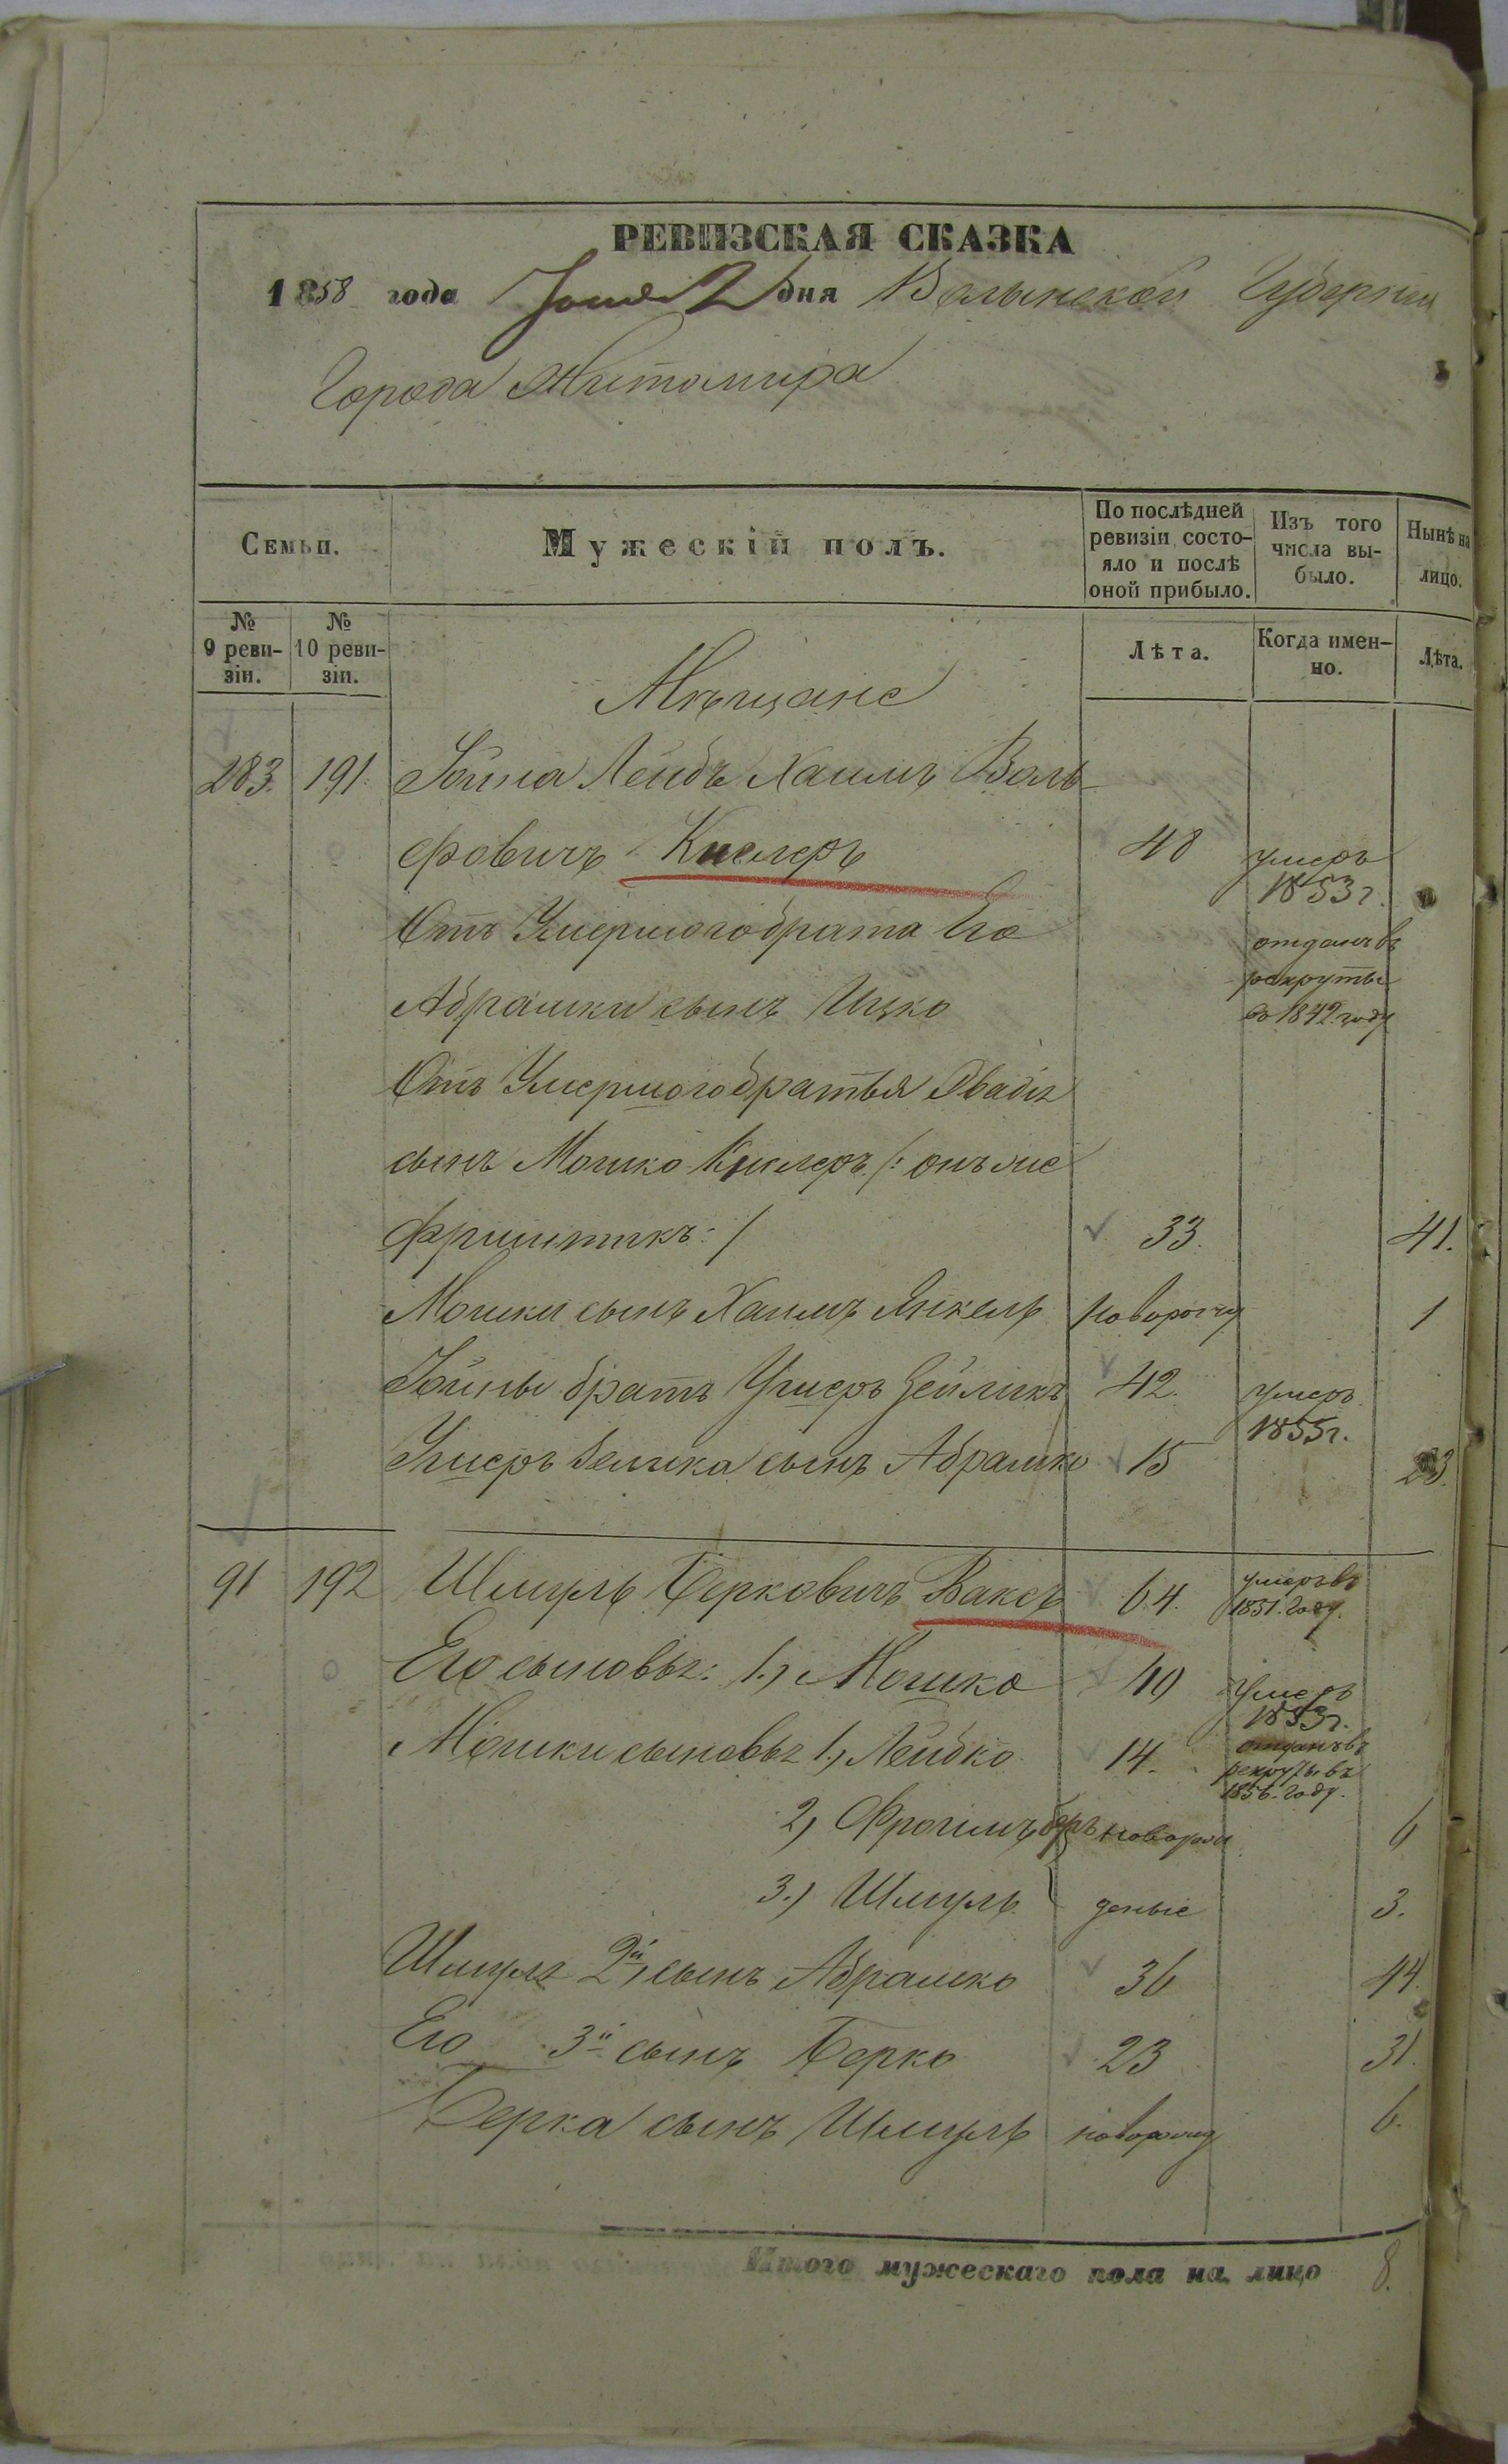 РЕВИЗСКАЯ СКАЗКА
1858 года Іюня 2 дня Волынской Губерніи
Города Житомира
Семьи.
Мужескій полъ.
По послѣдней ревизіи состояло и послѣ оной прибыло.
Изъ того числа выбыло.
Нынѣ на лицо.
№ 9 ревизіи.
№ 10 ревизіи.
Лѣта.
Когда именно.
Лѣта.
Мѣщане
283. 191 Іойна Лейбъ Хаимъ Воль-
фовичъ Кислеръ 48 умеръ 1853 г.
Отъ Умершого брата Его
Абрашки сынъ Ицко отданъ въ рекруты въ 1842 году
Отъ Умершого братья Овадія
сынъ Мошко Кислеръ /: онъ же
Фриштикъ :/ 33. 41.
Мошки сынъ Хаимъ Янкель новорожд 1
Іойны братъ Ушеръ Зейликъ 42. умеръ 1855 г.
Ушеръ Зелика сынъ Абрашко 15 23.
91 192 Шмуль Берковичъ Ваксъ 64. умеръ въ 1851. Году.
Его сыновья: 1.) Мошко 40 умеръ 1853 г.
Мошки сыновья 1.) Лейбко 14. отданъ въ рекруты въ 1856. Году.
2) Фроимъ Беръ новорож 6
3.) Шмуль деные 3.
Шмуля 2й сынъ Абрашко 36 44.
Его 3й сынъ Берко 23 31.
Берка сынъ Шмуль новорожд 6.
Итого мужескаго пола на лицо 8.